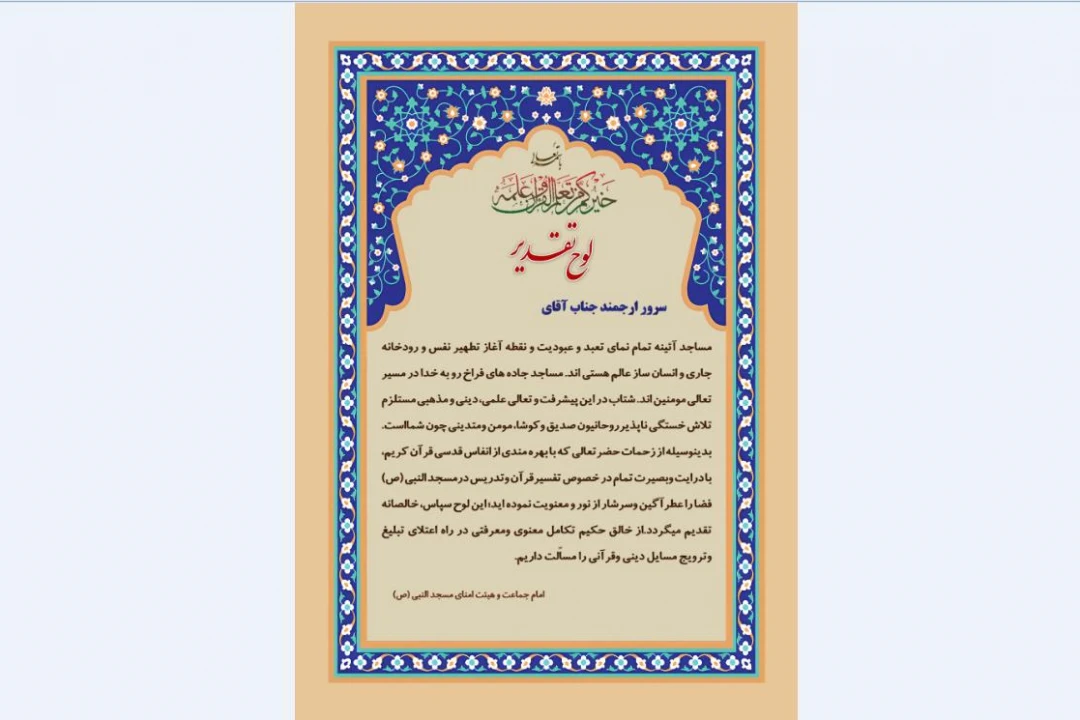 باسمه تعالی
خیرکم من تعلم القرآن و علمه
لوح تقدیر
سرور ارجمند جناب آقای
مساجد آئینه تمام نمای تعبد و عبودیت و نقطه آغاز تطهیر نفس و رودخانه
جاری و انسان ساز عالم هستی اند. مساجد جاده های فراخ رو به خدا در مسیر
تعالی مومنین اند. شتاب در این پیشرفت و تعالی علمی، دینی و مذهبی مستلزم
تلاش خستگی ناپذیر روحانیون صدیق و کوشا، مومن ومتدینی چون شمااست.
بدینوسیله از زحمات حضرتعالی که با بهره مندی از انفاس قدسی قرآن کریم،
با درایت وبصیرت تمام در خصوص تفسیر قرآن وتدریس درمسجد النبی (ص)
فضا را عطرآگین وسرشار از نور و معنویت نموده اید؛ این لوح سپاس، خالصانه
تقدیم میگردد.از خالق حکیم تکامل معنوی ومعرفتی در راه اعتلای تبلیغ
وترویج مسایل دینی وقرآنی را مسألت داریم.
امام جماعت و هیئت امنای مسجد النبی (ص)